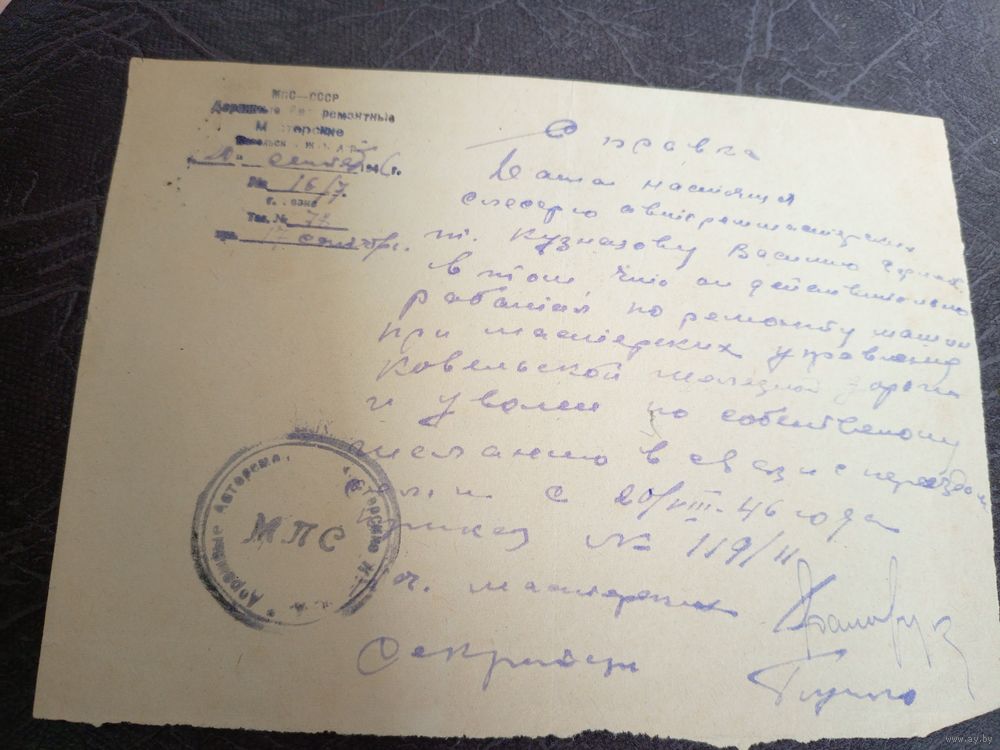 МПС—СССР
Дорожные Авторемонтные
Мастерские
сентяб 1946 г.
№ 16/7.
Тел. №
17 сентябр.
Справка
Дана настоящая
слесарю автореммастерских
т. Кузнацову Василию
в том что он действительно
работал по ремонту машин
при мастерских управления
Ковельской железной дороги
и уволен по собственому
желанию в связи с переездом
с 20/VIII-46 года
Приказ № 119/II
Нач. мастерских
Секретарь
Дорожные Авторемо мастерские
МПС
www.ay.by